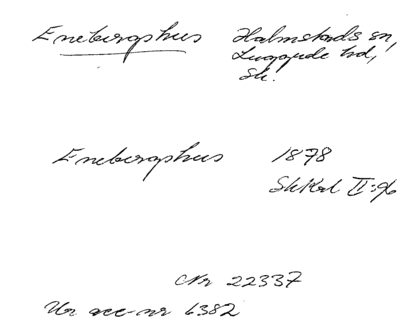 Eneborghus Halmstads sn,
Luggude hd,
Sk.
Eneborghus 1878
SkKal II:96
Nr 22337
Ur acc-nr 6382